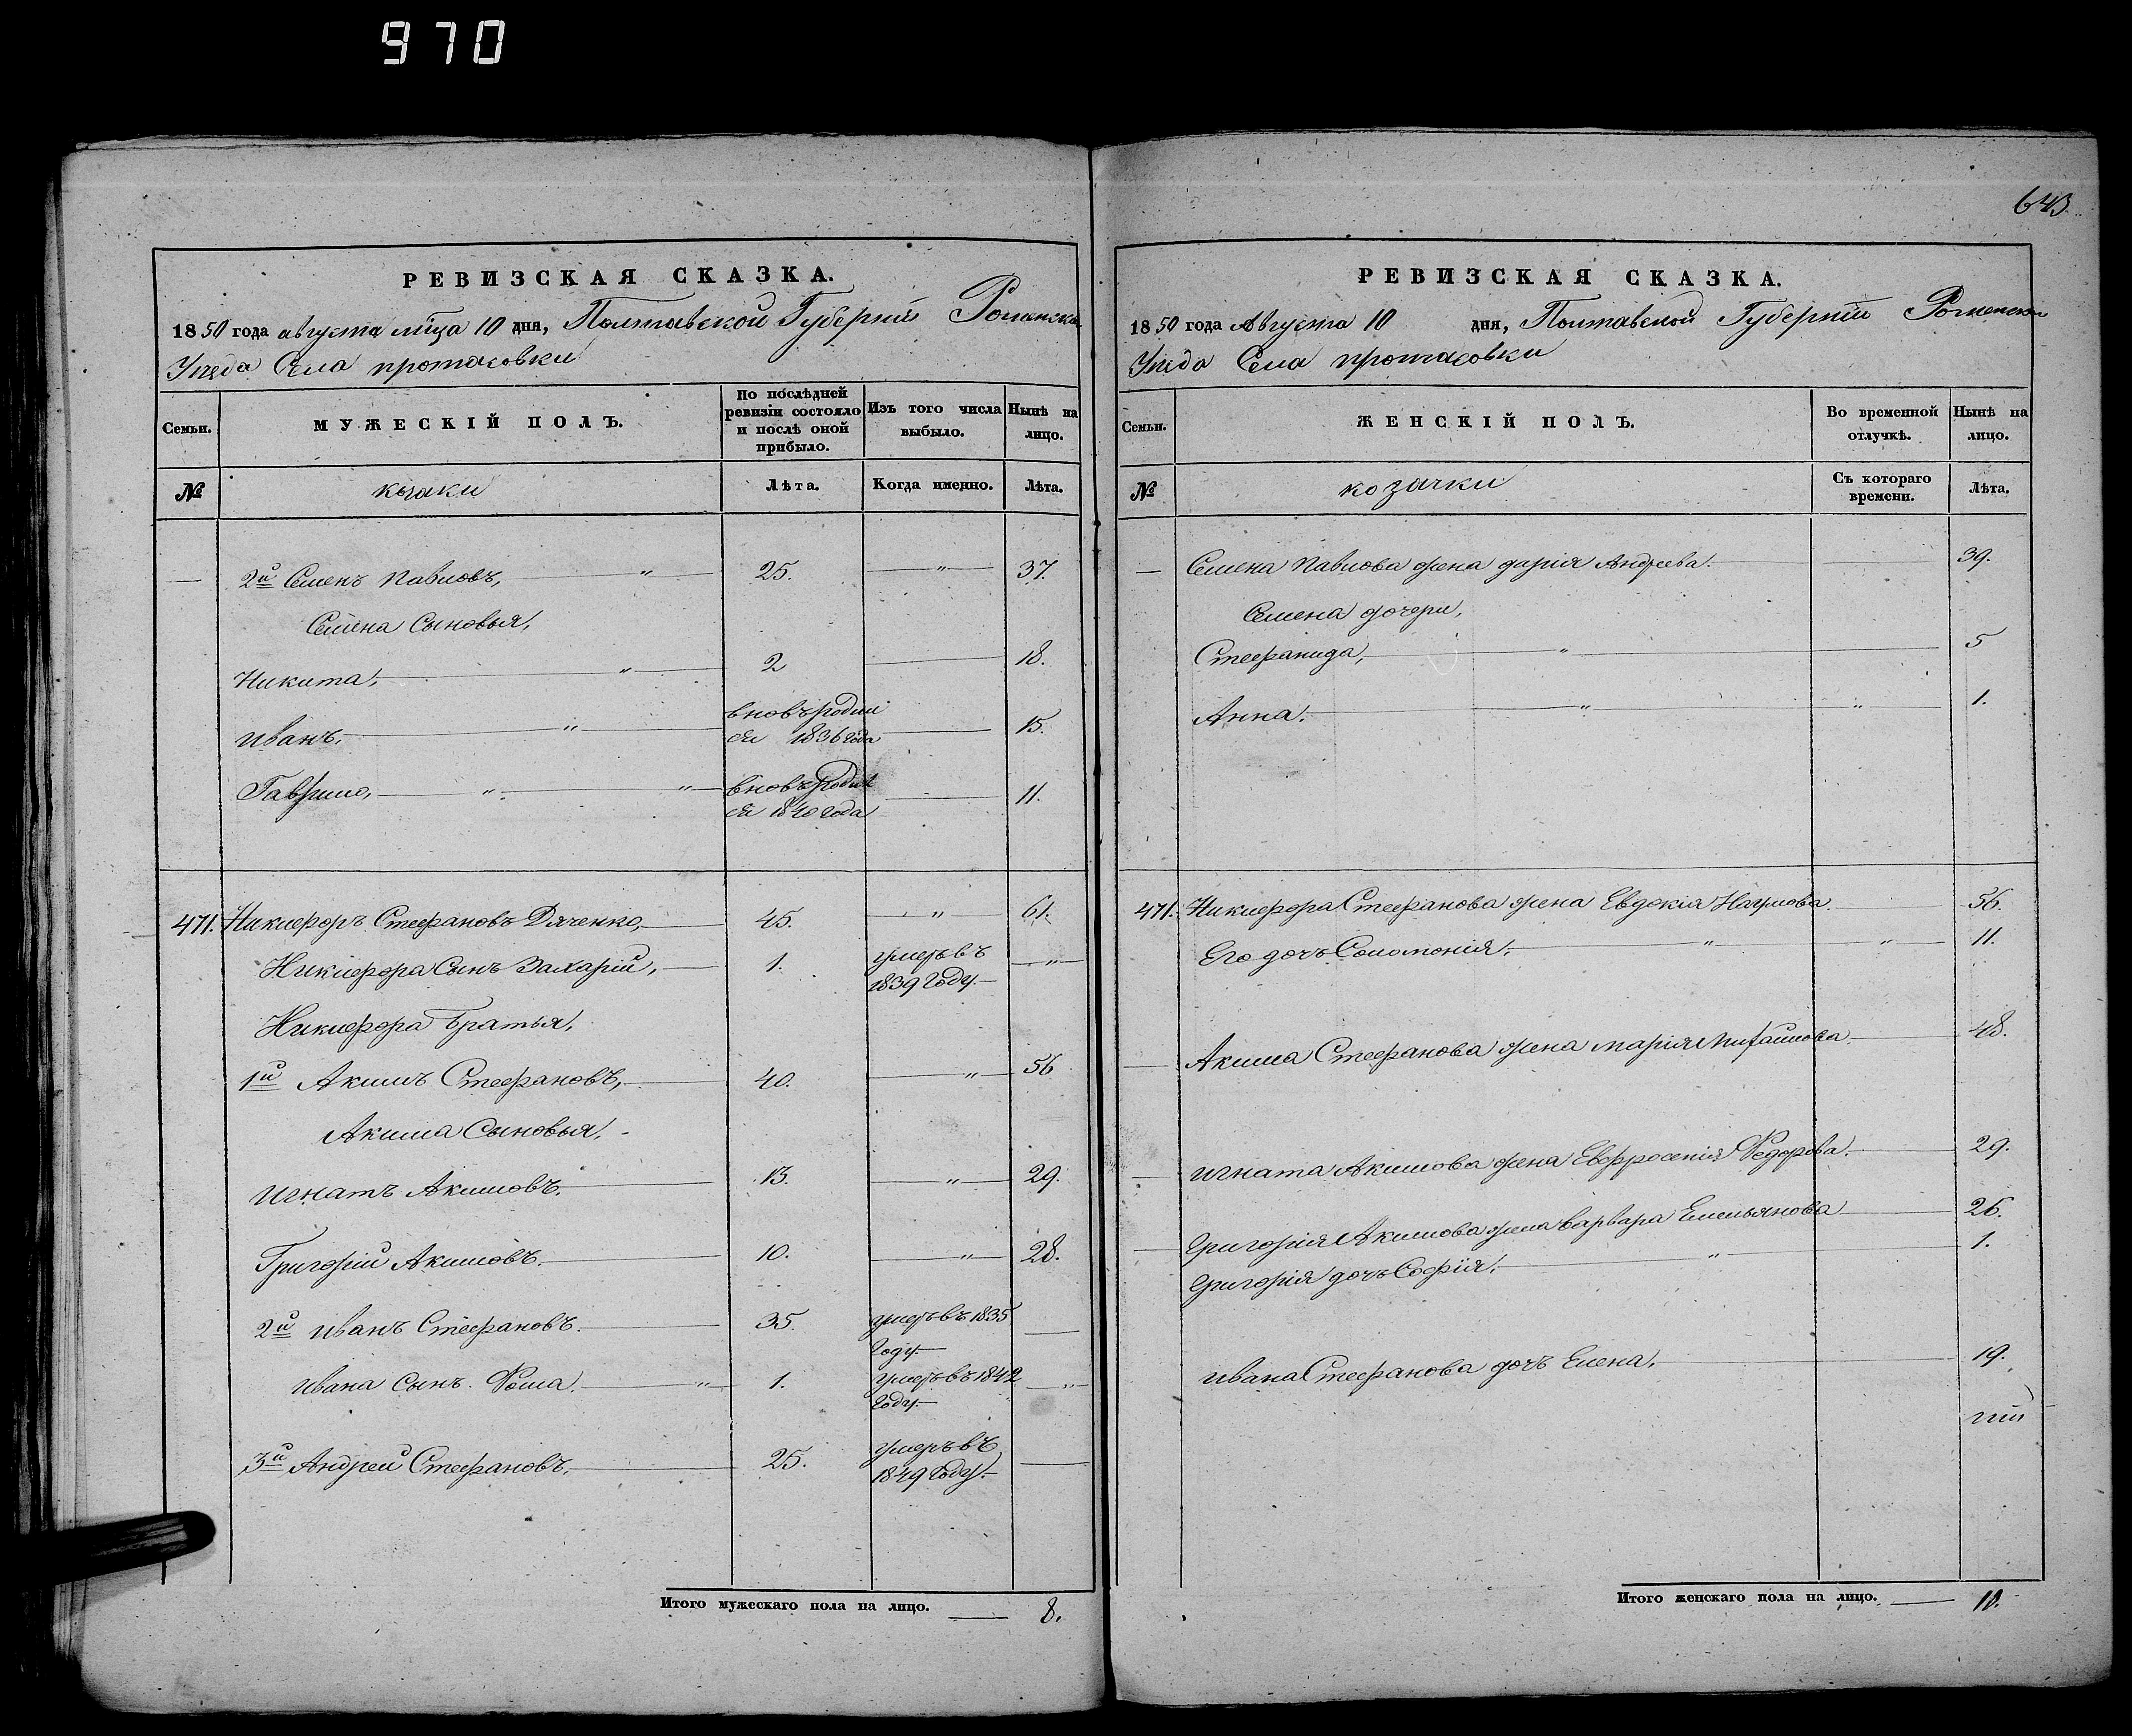 970
643
РЕВИЗСКАЯ СКАЗКА.
1850 года августа мѣца 10 дня, Полтавской Губерніи Роменска
Уѣзда Села протасовки
Семьи.
МУЖЕСКІЙ ПОЛЪ.
По послѣдней ревизіи состояло и послѣ оной прибыло.
Изъ того числа выбыло.
Нынѣ на лицо.
№
козаки
Лѣта.
Когда именно.
Лѣта.
— 2й Семенъ Павловъ, — " — 25. — " — 37.
Семена Сыновья,
Никита, — " — 2 — 18.
иванъ, — " — вновь родил
ся 1836 года — 15.
Гаврило, — " — " — вновь родил
ся 1840 года — 11.
471. Никифоръ Стефановъ Дяченко, — 45. — " — 61.
Никифора Сынъ Захарій, — 1. умеръ въ
1839 Году. — " —
Никифора братья,
1й Акимъ Стефановъ, — 40. — " — 56
Акима Сыновья,
игнатъ Акимовъ. — 13. — " — 29.
Григорій Акимовъ. — 10. — " — 28.
2й иванъ Стефановъ. — 35. умеръ въ 1835
Году. —
ивана сынъ Фома. — " — 1. умеръ въ 1842
Году. — " —
3й Андрей Стефановъ. — 25. умеръ въ
1849 Году. —
Итого мужескаго пола на лицо. — 8.
РЕВИЗСКАЯ СКАЗКА.
1850 года Августа 10 дня, Полтавской Губерніи Роменска
Уѣзда Села протасовки
Семьи.
ЖЕНСКІЙ ПОЛЪ.
Во временной отлучкѣ.
Нынѣ на лицо.
№
козачки
Съ котораго времени.
Лѣта.
— Семена Павлова жена дарія Андреева. — 39.
Семена дочери,
Стефанида, — " — 5
Анна. — " — " — 1.
471. Никифора Стефанова жена Евдокія Наумова. — 56.
Его дочь Соломонія. — " — " — 11.
— Акима Стефанова жена марія михайлова. — 48.
— игната Акимова жена Евфросенія Федорова. — 29.
— Григорія Акимова жена варвара Емельянова — 26.
Григорія дочь Софія. — " — 1.
ивана Стефанова дочь Елена. — 19.
Итого женскаго пола на лицо. — 10.